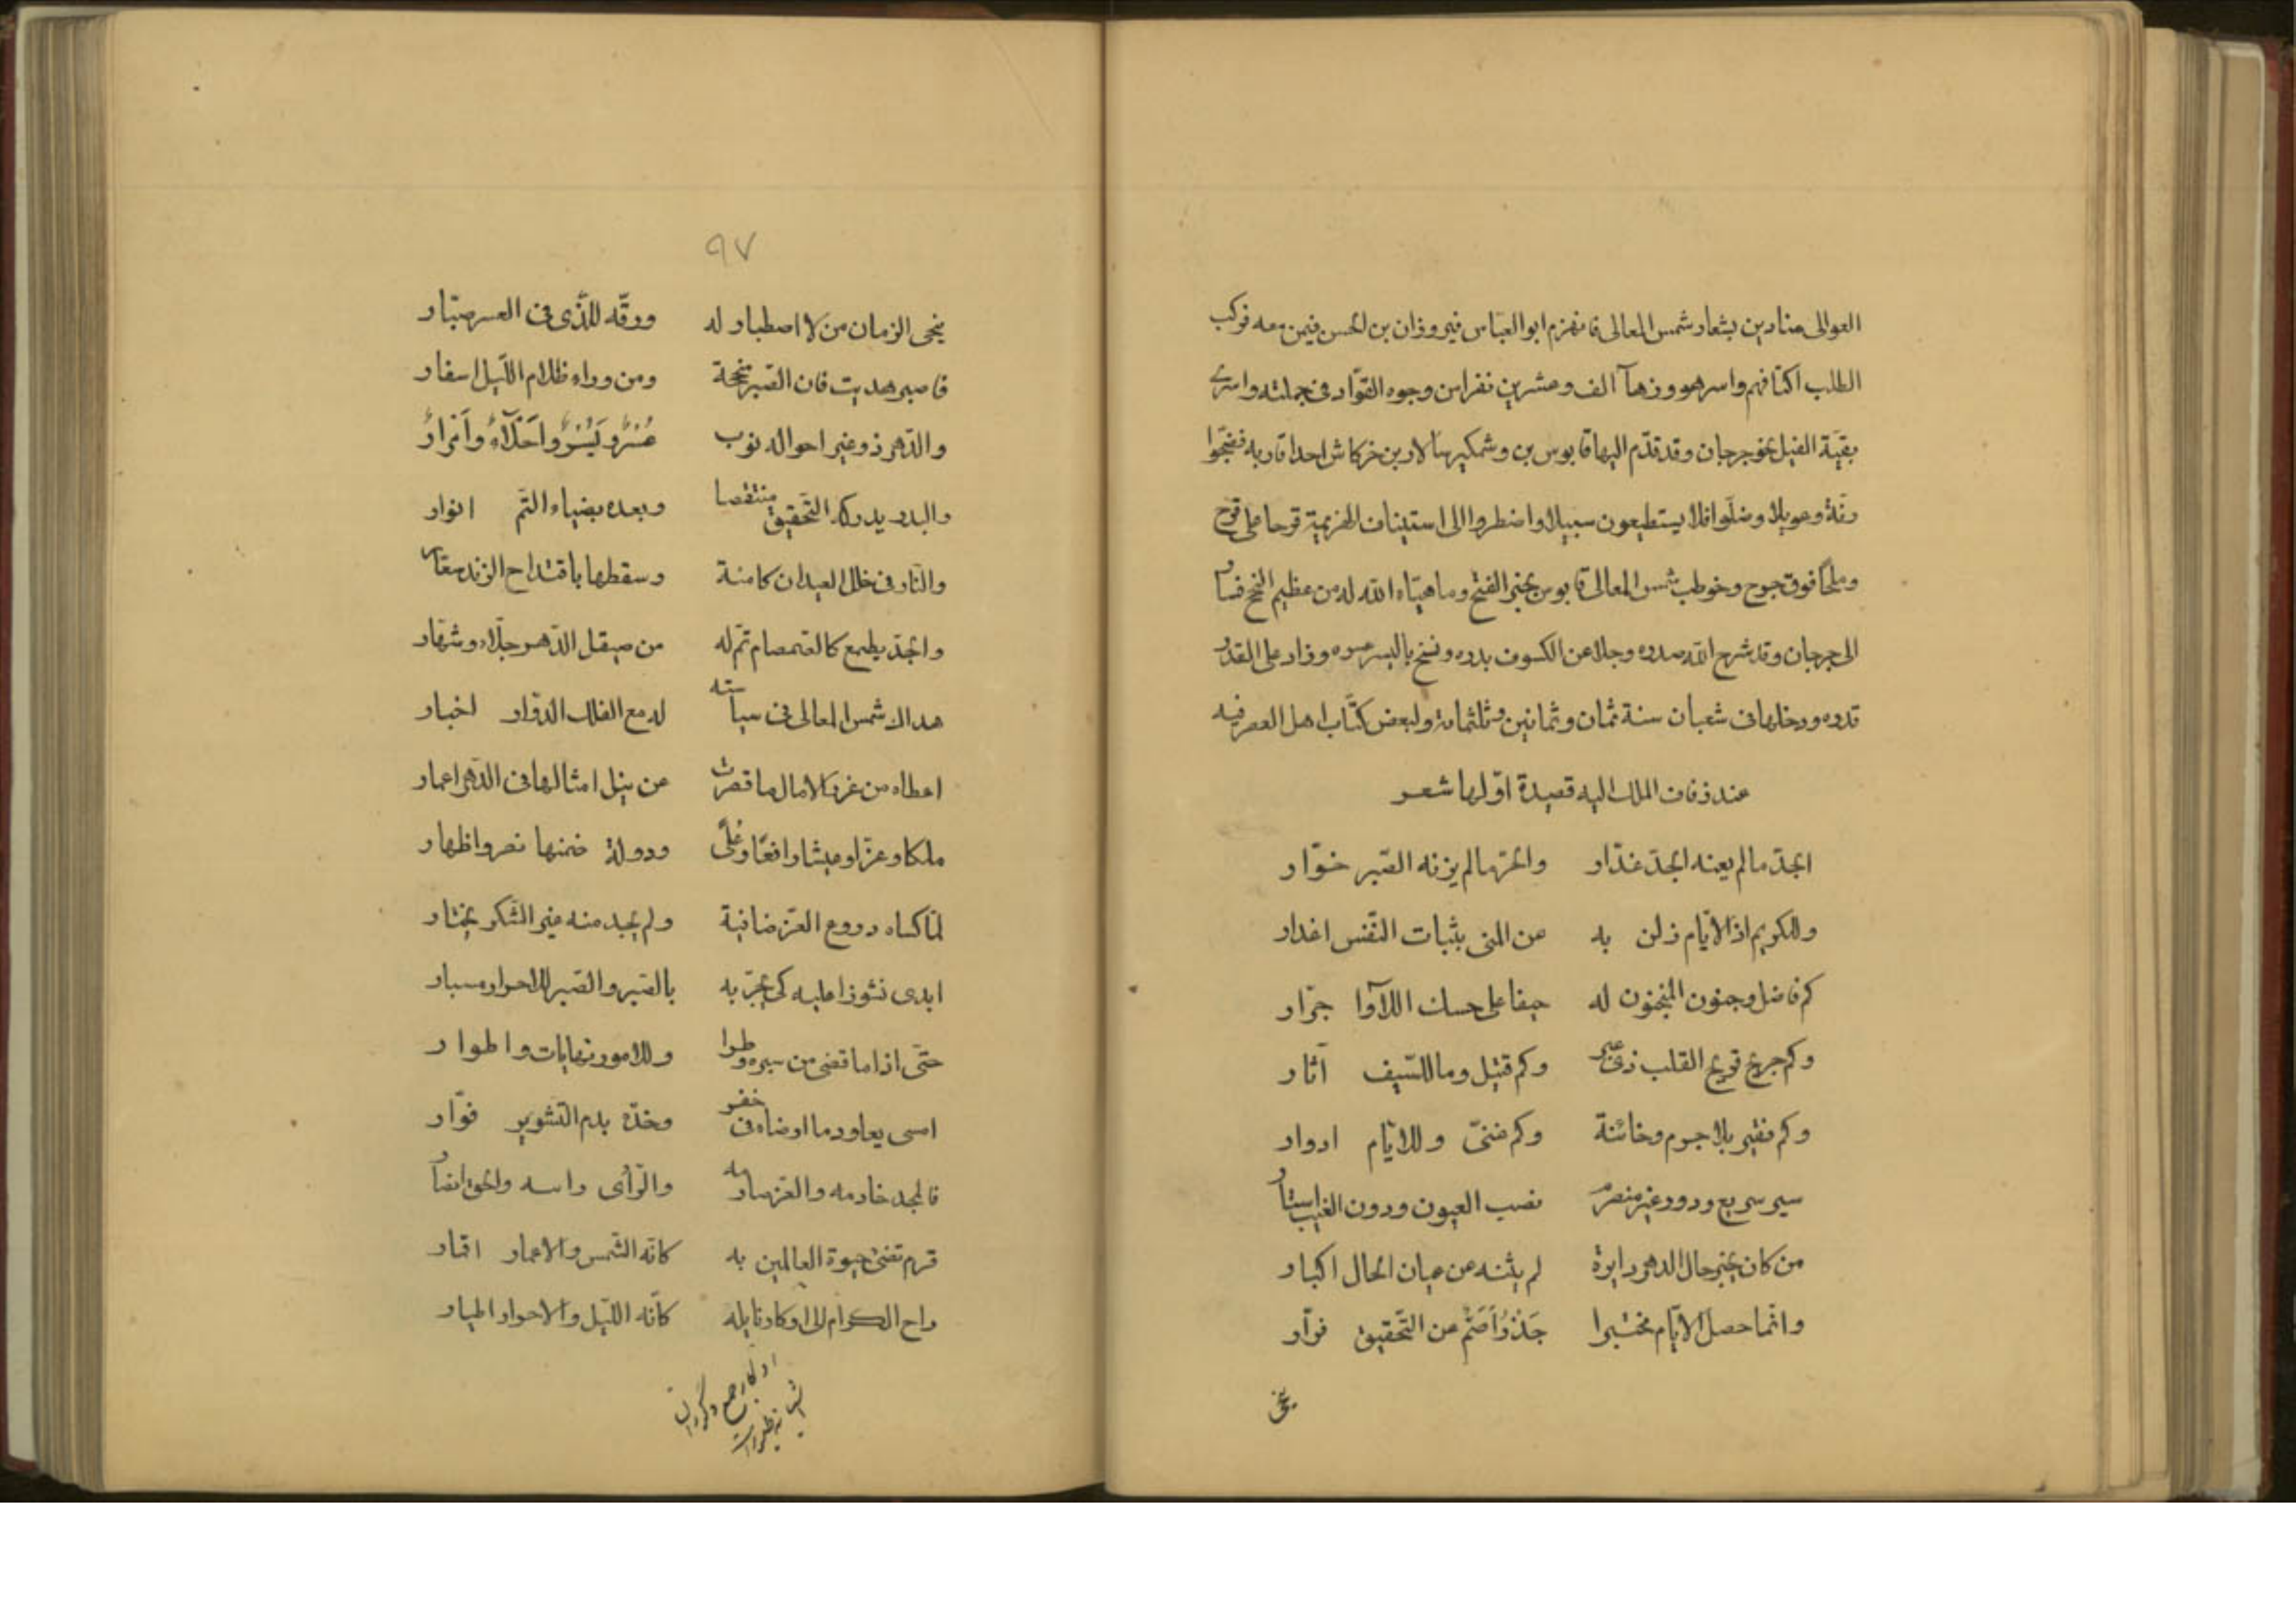 العوالی منادین بشعار شمس المعالی فانهزم ابو العبّاس فیروزان بن الحسن فیمن معه فرکب
الطلب اکتافهم واسر هو وزهآ الف وعشرین نفرا من وجوه القوّاد فی جملته واسری
بقیّة الفیل نحو جرجان وقد قدّم الیها قابوس بن وشمکیر سالار بن خرکاش احد اقاربه فضجّوا
رنّة وعویلا وضلّوا فلا یستطیعون سبیلا واضطروا الی استیناف الهزیمة قرحا علی قرح
وملحًا فوق جرح وخوطب شمس المعالی قابوس بخبر الفتح وما هیّاه الله له من عظیم النجح فسار
الی جرجان وقد شرح الله صدره وجلا عن الکسوف بدره ونسخ بالیسر عسره وزاد علی القدر
قدره ودخلها فی شعبان سنة ثمان وثمانین وثلثمائة ولبعض کتّاب اهل العصر فیه
عند زفاف الملك الیه قصیدة اوّلها شعر
الجدّ مالم یعنه الجدّ غدّار والحرّ مالم یزنه الصّبر خوّار
وللکریم اذا الایّام زلن به عن المنی بثبات النّفس اعذار
کم فاضل وجنون المنجنون له حیفا علی حسك اللآوا جرّار
وکم جریح قریح القلب ذی عبر وکم قتیل وما للسّیف آثار
وکم فقیر بلا جرم وخائنة وکم غنیّ وللایّام ادوار
سیر سریع ودور غیر منصرم نصب العیون ودون الغیب استار
من کان یخبر حال الدهر دایرة لم یثنه عن عیان الحال اکبار
وانّما حصل الایّام مختبرا جَذْرٌ اَصَمّ عن التّحقیق فرّار
ینحی
٩٧
ینحی الزمان من لا اصطبار له ورقّه للّذی فی العسر صبّار
فاصبر هدیت فان الصّبر منجحة ومن وراء ظلام اللّیل اسفار
والدّهر ذو غیر احواله نوب عُسْرٌ ویُسْرٌ واَحْلآءٌ واَمْرارٌ
والبدر یدرکه التّحقیق منتقصا وبعده بضیاء التّم انوار
والنّار فی خلل العیدان کامنة وسقطها باقتداح الزند سقار
والجدّ یطبع کالصّمصام تمّ له من صیقل الدّهر جلّاء وشهّار
هداك شمس المعالی فی سیاسته له مع الفلك الدوّار اخبار
اعطاه من غرر الامال ما قصرت عن نیل امثالها فی الدّهر اعمار
ملکا وعزّا وعیشا رافغا وعُلًی ودولة ضمنها نصر واظهار
لمّا کساه دروع العزّ ضافیة ولم یجد منه غیر الشّکر یختار
ابدی نشوزا علیه کی یجرّبه بالصّبر والصّبر للاحرار مسبار
حتّی اذا ما قضی من سبره وطرا وللامور نهایات واطوار
امسی یعاود ما ارضاه فی خفر وخدّه بدم التّشویر فوّار
فالمجد خادمه والعزّ صارمه والرّأی راسه والحقّ انصار
قرم تفنی حیوة العالمین به کانّه الشّمس والاعمار اقمار
راح الکرام الی اوکار نایله کانّه اللّیل والاحرار اطیار